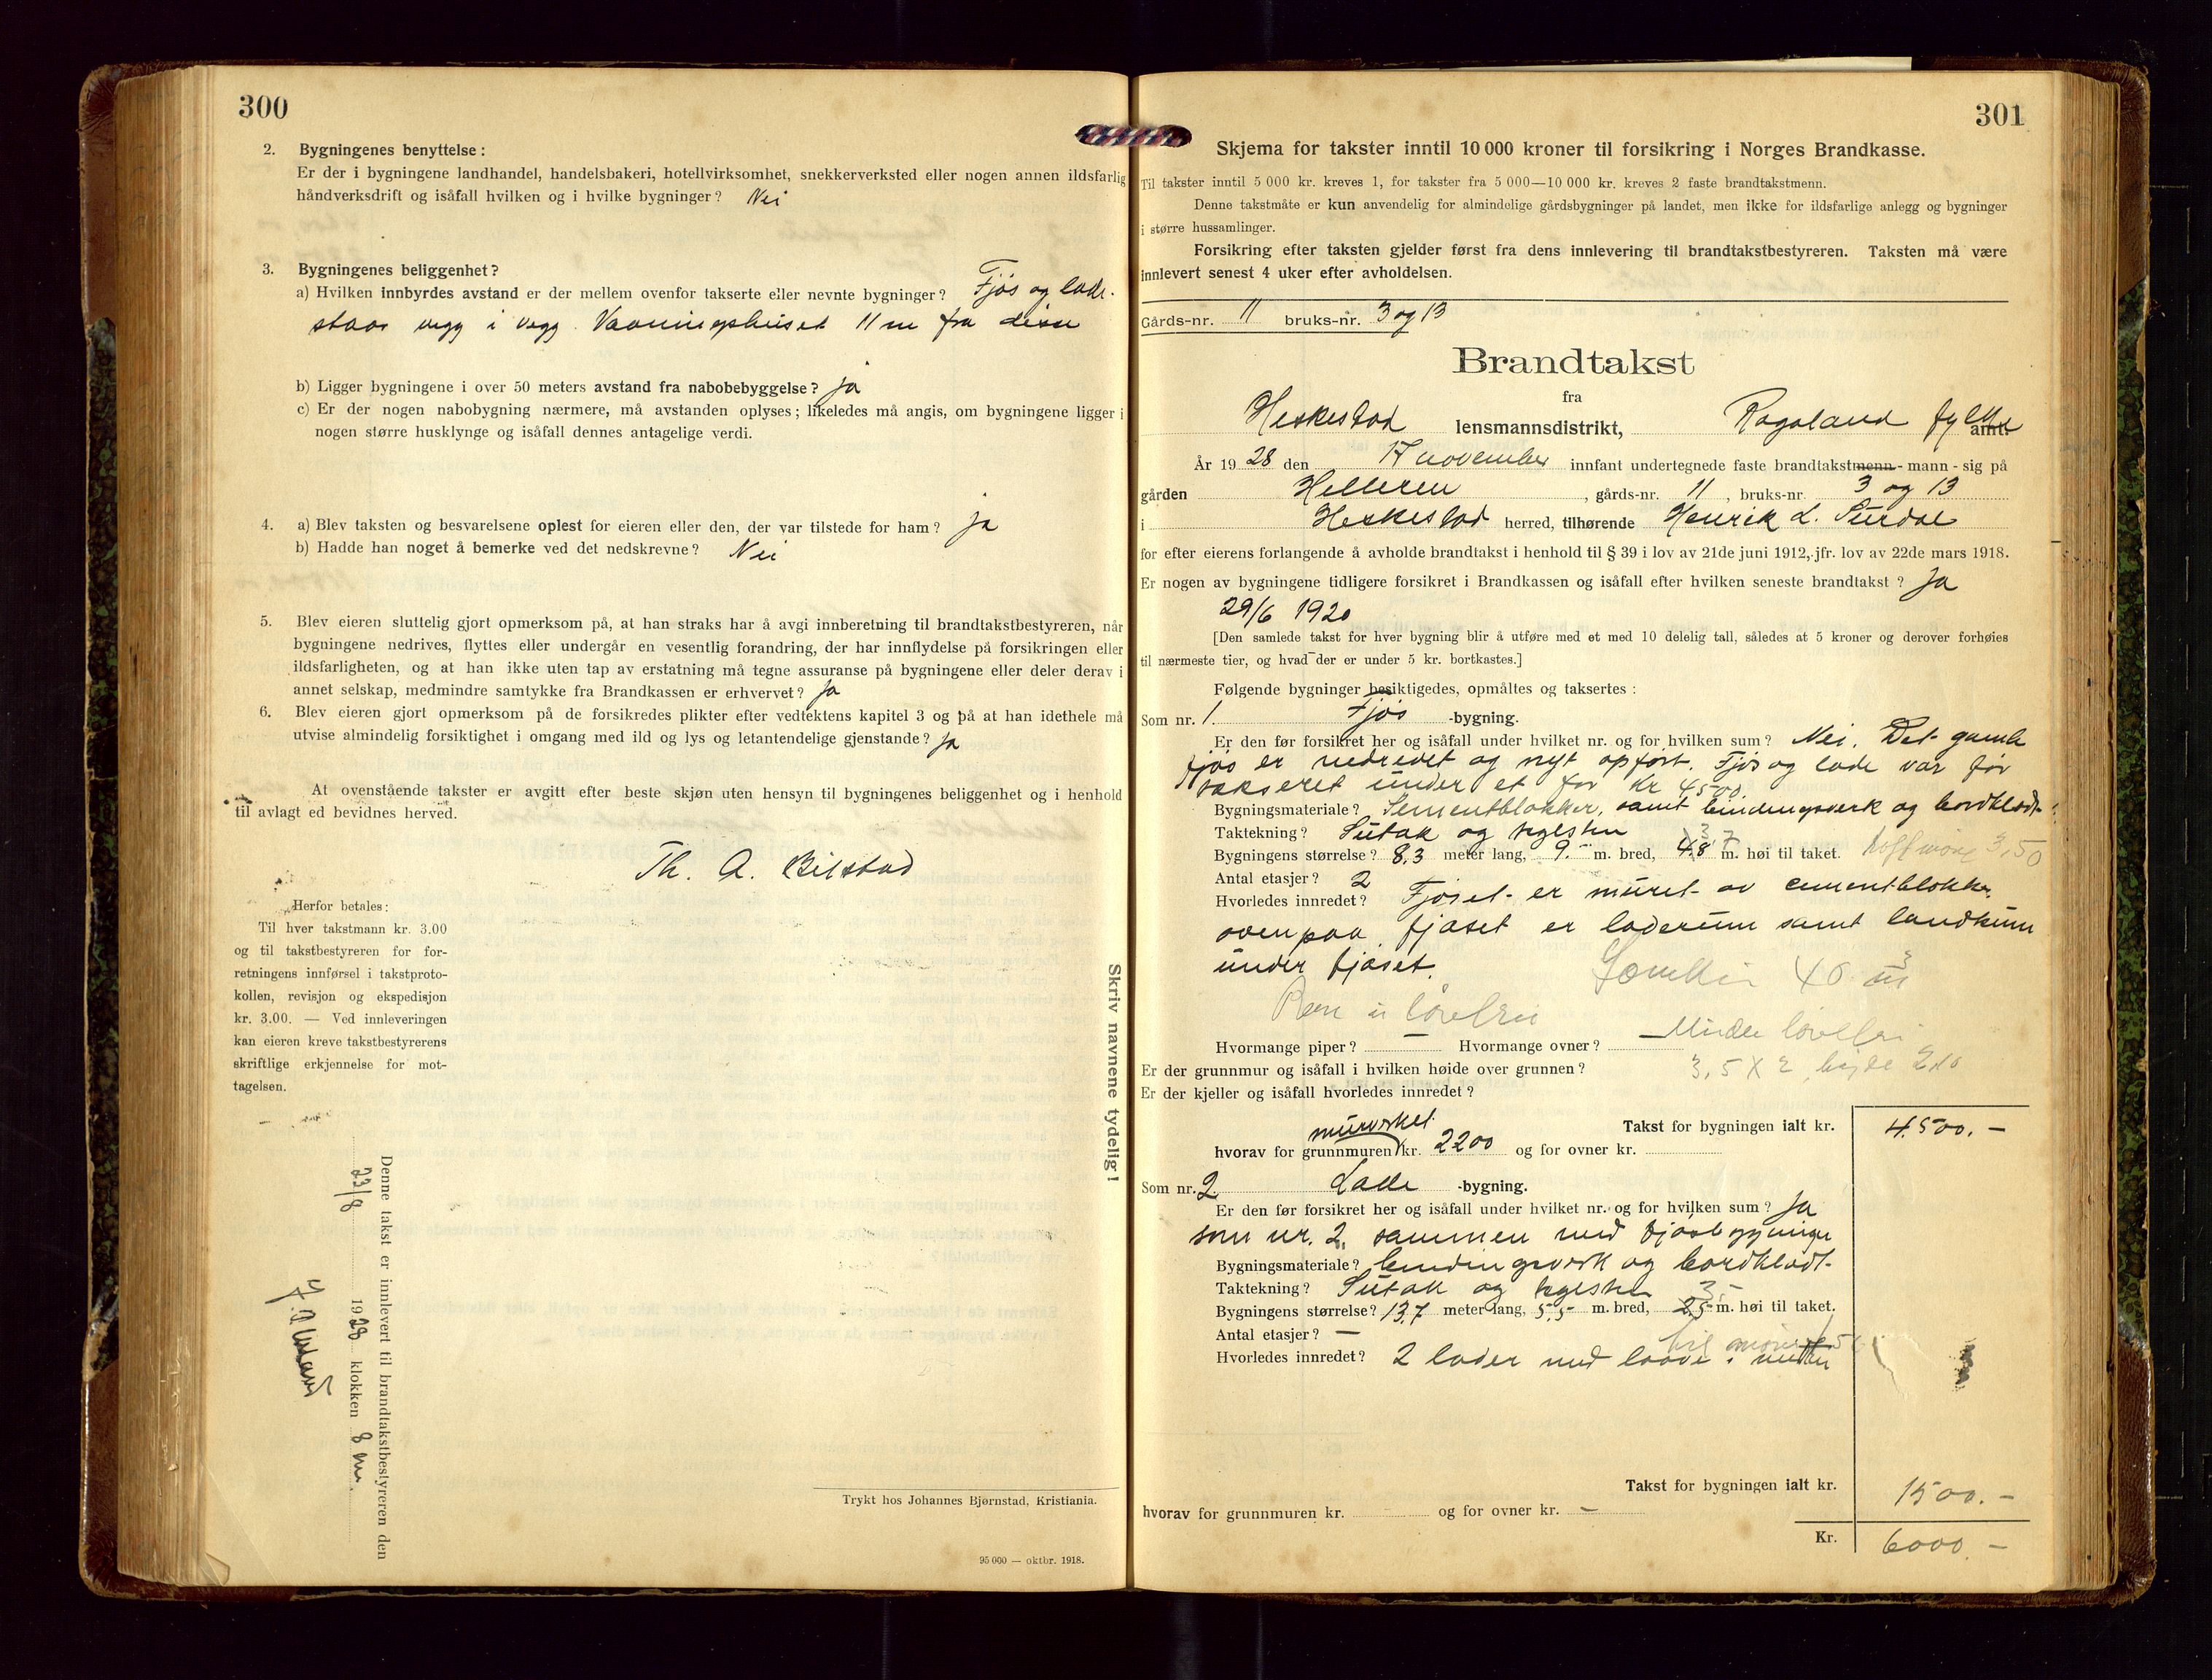 300
2. Bygningenes benyttelse:
Er der i bygningene landhandel, handelsbakeri, hotellvirksomhet, snekkerverksted eller nogen annen ildsfarlig
håndverksdrift og isåfall hvilken og i hvilke bygninger? Nei
3. Bygningenes beliggenhet?
a) Hvilken innbyrdes avstand er der mellem ovenfor takserte eller nevnte bygninger? Fjøs og lade.
staar vegg i vegg. Vaaningshuset 11 m fra disse
b) Ligger bygningene i over 50 meters avstand fra nabobebyggelse? ja
c) Er der nogen nabobygning nærmere, må avstanden oplyses; likeledes må angis, om bygningene ligger i
nogen større husklynge og isåfall dennes antagelige verdi.
4. a) Blev taksten og besvarelsene oplest for eieren eller den, der var tilstede for ham? ja
b) Hadde han noget å bemerke ved det nedskrevne? Nei
5. Blev eieren sluttelig gjort opmerksom på, at han straks har å avgi innberetning til brandtakstbestyreren, når
bygningene nedrives, flyttes eller undergår en vesentlig forandring, der har innflydelse på forsikringen eller
ildsfarligheten, og at han ikke uten tap av erstatning må tegne assuranse på bygningene eller deler derav i
annet selskap, medmindre samtykke fra Brandkassen er erhvervet? ja
6. Blev eieren gjort opmerksom på de forsikredes plikter efter vedtektens kapitel 3 og på at han idethele må
utvise almindelig forsiktighet i omgang med ild og lys og letantendelige gjenstande? ja
At ovenstående takster er avgitt efter beste skjøn uten hensyn til bygningenes beliggenhet og i henhold
til avlagt ed bevidnes herved.
Th. A. Bilstad
Herfor betales:
Til hver takstmann kr. 3.00
og til takstbestyreren for for-
retningens innførsel i takstproto-
kollen, revisjon og ekspedisjon
kr. 3.00. — Ved innleveringen
kan eieren kreve takstbestyrerens
skriftlige erkjennelse for mot-
tagelsen.
Denne takst er innlevert til brandtakstbestyreren den
23/8 1928 klokken 8 m.
Skriv navnene tydelig!
Trykt hos Johannes Bjørnstad, Kristiania.
95 000 — oktbr. 1918.
301
Skjema for takster inntil 10 000 kroner til forsikring i Norges Brandkasse.
Til takster inntil 5 000 kr. kreves 1, for takster fra 5 000—10 000 kr. kreves 2 faste brandtakstmenn.
Denne takstmåte er kun anvendelig for almindelige gårdsbygninger på landet, men ikke for ildsfarlige anlegg og bygninger
i større hussamlinger.
Forsikring efter taksten gjelder først fra dens innlevering til brandtakstbestyreren. Taksten må være
innlevert senest 4 uker efter avholdelsen.
Gårds-nr. 11 bruks-nr. 3 og 13
Brandtakst
fra
Heskestad lensmannsdistrikt, Rogaland fylke amt.
År 1928 den 17 november innfant undertegnede faste brandtakstmenn - mann - sig på
gården Helleren, gårds-nr. 11, bruks-nr. 3 og 13
i Heskestad herred, tilhørende Henrik L. Surdal
for efter eierens forlangende å avholde brandtakst i henhold til § 39 i lov av 21de juni 1912, jfr. lov av 22de mars 1918.
Er nogen av bygningene tidligere forsikret i Brandkassen og isåfall efter hvilken seneste brandtakst? Ja
29/6 1920
[Den samlede takst for hver bygning blir å utføre med et med 10 delelig tall, således at 5 kroner og derover forhøies
til nærmeste tier, og hvad der er under 5 kr. bortkastes.]
Følgende bygninger besiktigedes, opmåltes og taksertes:
Som nr. 1. Fjøs -bygning.
Er den før forsikret her og isåfall under hvilket nr. og for hvilken sum? Nei. Det gamle
fjøs er nedrevet og nyt opført. Fjøs og lade var før
takseret under et for kr 4500.
Bygningsmateriale? Sementblokker, samt bindingsverk og bordklædt.
Taktekning? Sutak og teglsten
Bygningens størrelse? 8,3 meter lang, 9.- m. bred, 4.8 3,7 m. høi til taket. 3,50
Antal etasjer? 2
Hvorledes innredet? Fjøset er muret av cementblokker,
ovenpaa fjøset er laderum samt landkum
under fjøset.
40 m³
Hvormange piper? — Hvormange ovner?
3,5 X 2 høide 2,10
Er der grunnmur og isåfall i hvilken høide over grunnen?
Er der kjeller og isåfall hvorledes innredet?
Takst for bygningen ialt kr. 4500.-
murverket
hvorav for grunnmuren kr. 2200 og for ovner kr.
Som nr. 2. Lade -bygning.
Er den før forsikret her og isåfall under hvilket nr. og for hvilken sum? Ja
som nr. 2. sammen med fjøsbygningen
Bygningsmateriale? bindingsverk og bordklædt.
Taktekning? Sutak og teglsten
Bygningens størrelse? 13,7 meter lang, 5,5 m. bred, 2,5 3,- m. høi til taket.
Antal etasjer? —
Hvorledes innredet? 2 lader med laave i midten
Takst for bygningen ialt kr. 1500.-
hvorav for grunnmuren kr. og for ovner kr. —
Kr. 6000.-